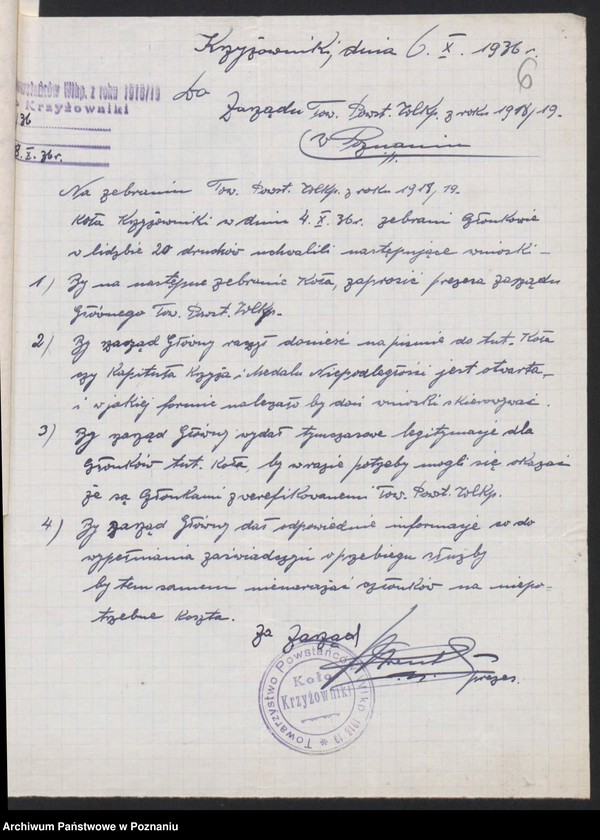 Krzyżowniki, dnia 6. X. 1936 r.
6
Powstańców Wlkp. z roku 1918/19
Krzyżowniki
36
8. X. 36 r.
Do
Zarządu Tow. Powst. Wlkp. z roku 1918/19.
w Poznaniu
Na zebraniu Tow. Powst. Wlkp. z roku 1918/19.
Koła Krzyżowniki w dniu 4. X. 36 r. zebrani Członkowie
w liczbie 20 druchów uchwalili następujące wnioski -
1) By na następne zebranie Koła, zaprosić prezesa zarządu
Głównego Tow. Powst. Wlkp.
2) By zarząd Główny raczył donieść na piśmie do tut. Koła
czy Kapituła Krzyża i Medalu Niepodległości jest otwarta -
i w jakiej formie należało by dań wnioski skierowywać.
3) By zarząd Główny wydał tymczasowe legitymacje dla
Członków tut. Koła, by w razie potrzeby mogli się okazać
że są Członkami zverefikowanemi Tow. Powst. Wlkp.
4) By zarząd Główny dał odpowiednie informacje co do
wypełniania zaświadczeń o przebiegu służby
by tem samem nienarażać członków na niepo-
trzebne koszta.
Za Zarząd
prezes.
Towarzystwo Powstańców Wlkp. 1918/19
Koło
Krzyżowniki
Archiwum Państwowe w Poznaniu